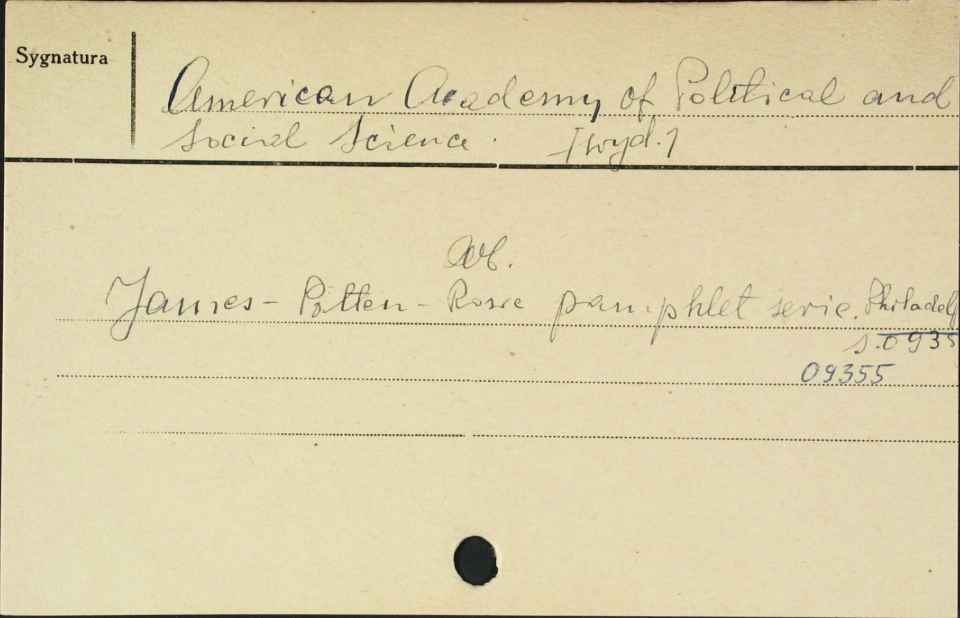 Sygnatura
American Academy of Political and
Social Science. [wyd.]
Ob.
James - Patten - Rowe pamphlet serie. Philadelp
s. 0935
09355